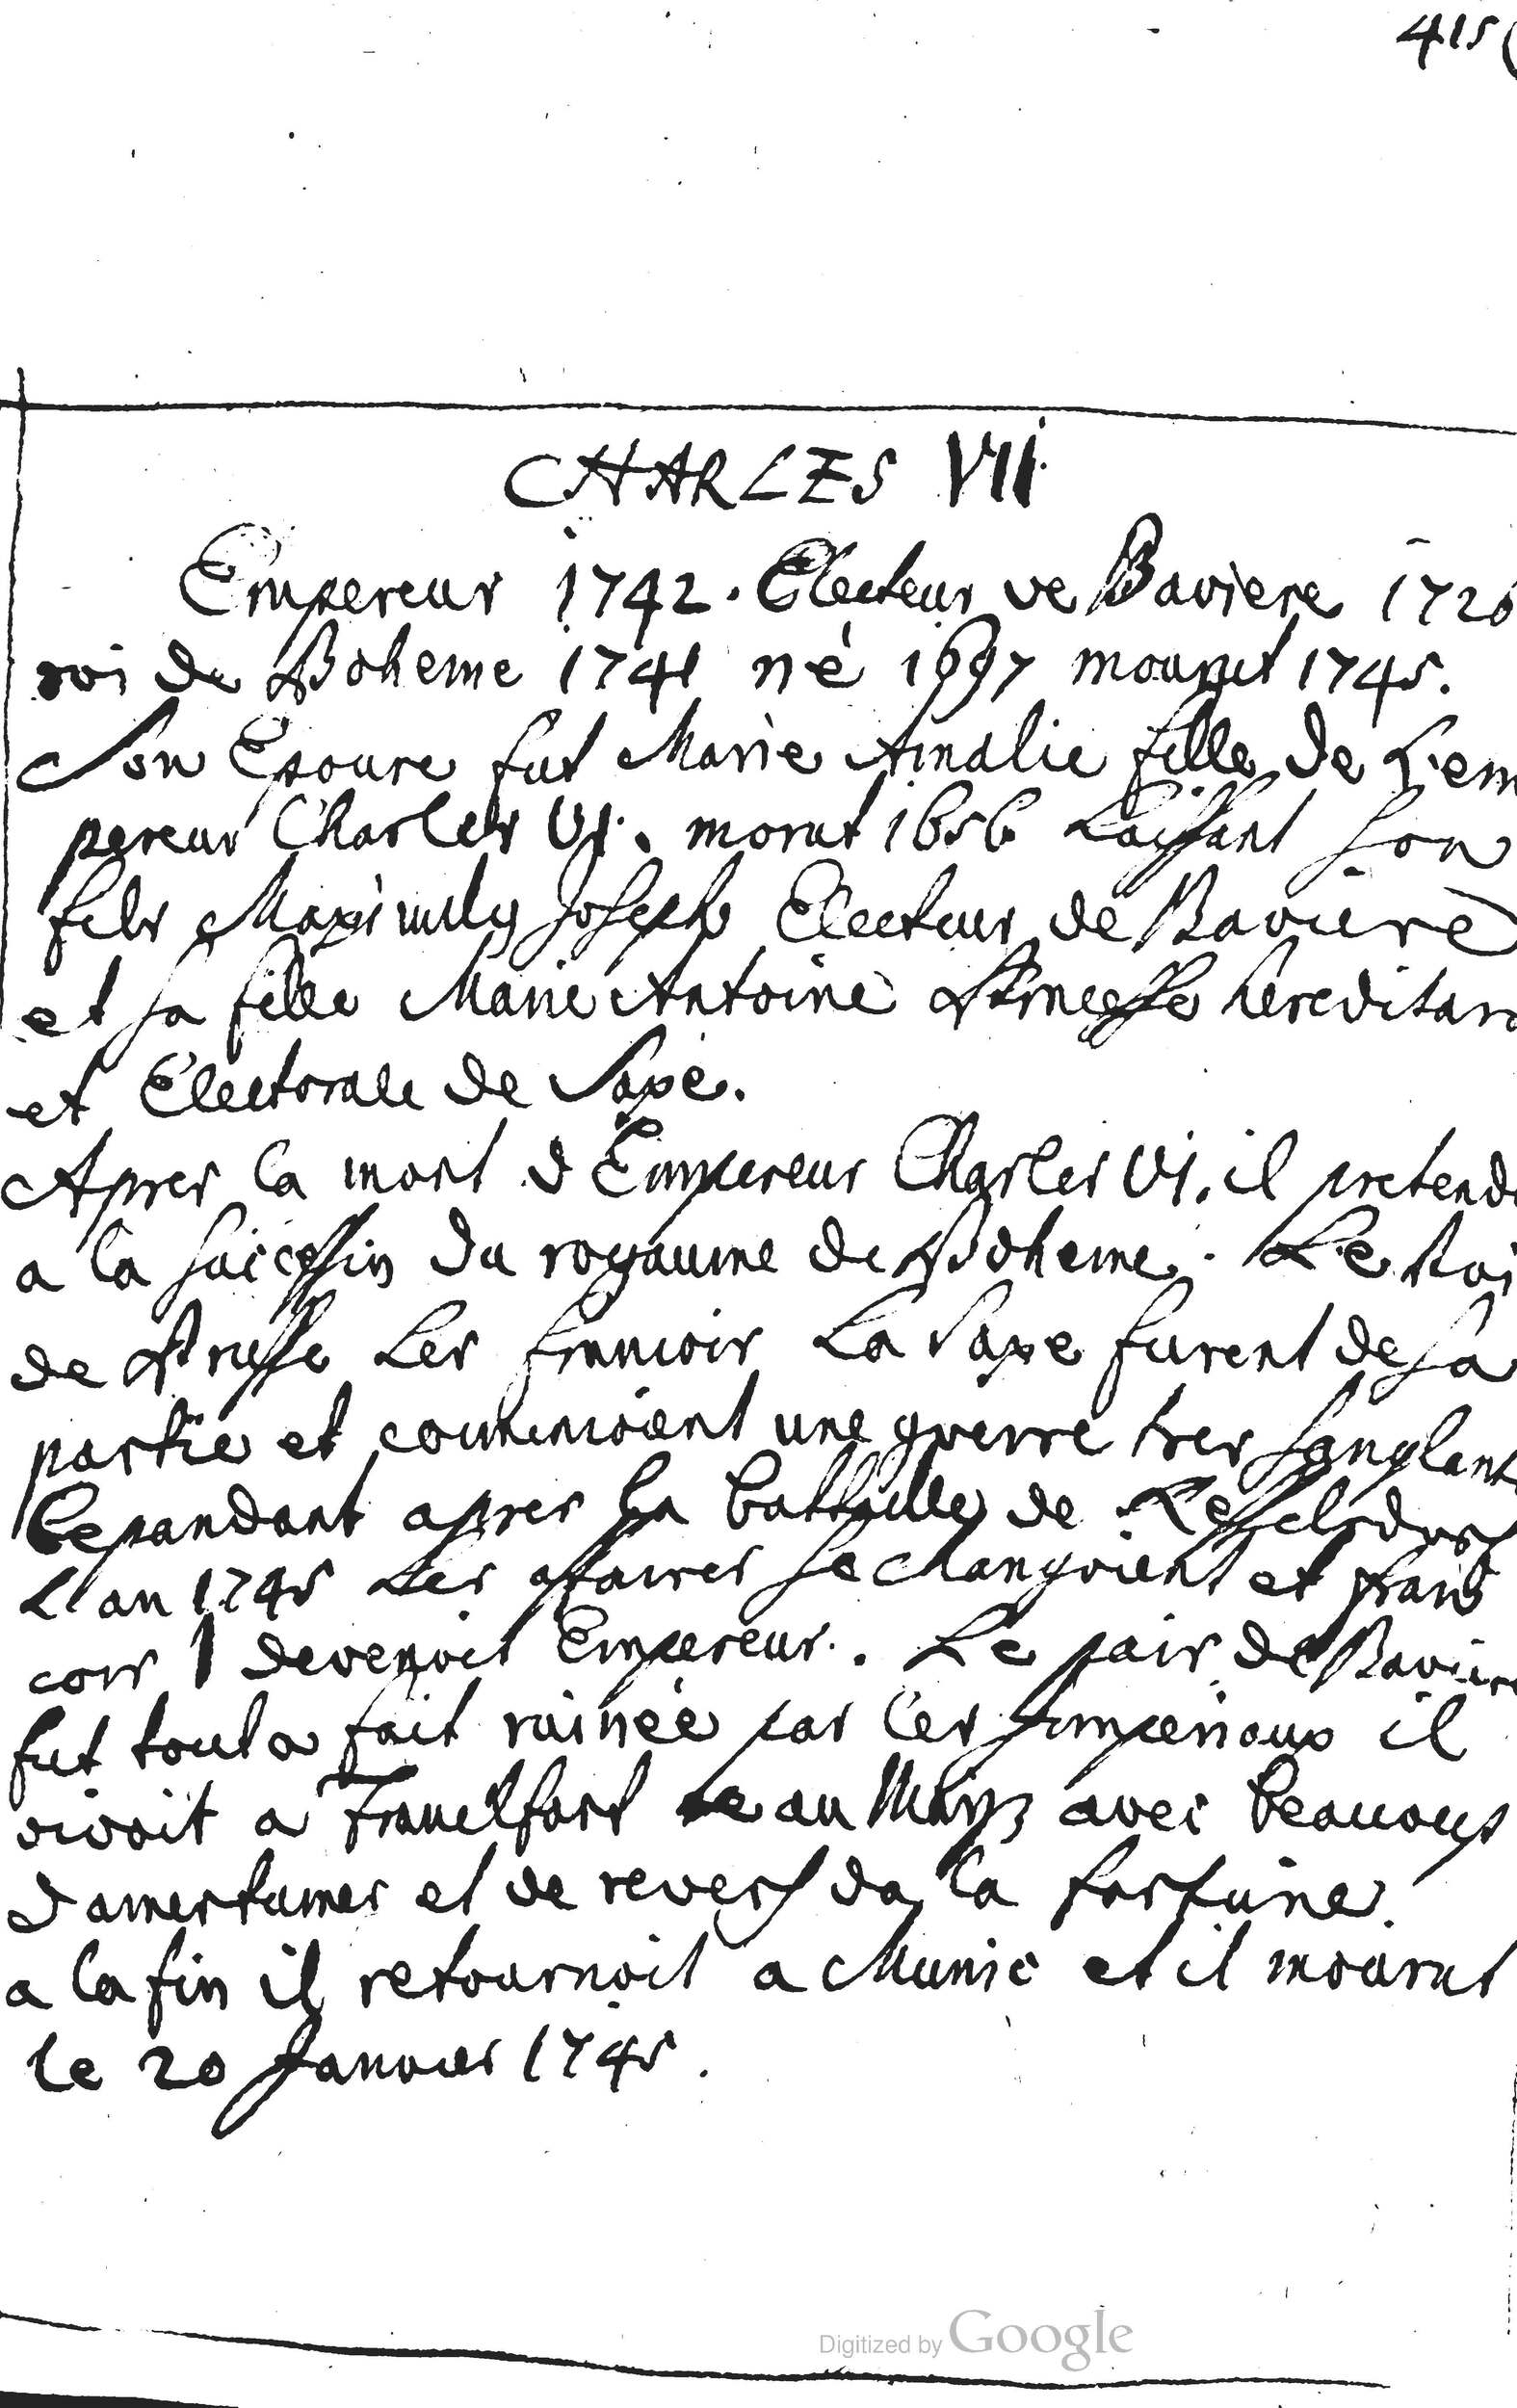 415
CHARLES VII.
Empereur 1742. Electeur de Baviere 1726
roi de Boheme 1741 né 1697 mourut 1745.
Son Epouse fut Marie Amalie fille de L'em
pereur Charles VI. morut 1656 Laissant son
fils Maximily Joseph Electeur de Baviere
et sa fille Marie Antoine Princesse hereditare
et Electorale de Saxe.
Apres la mort d Empereur Charles VI. il pretend
a la succession du royaume de Boheme. Le Roi
de Prusse Les francois La Saxe furent de sa
partie et commencoient une guerre tres sanglant
Cepandant apres la battaille de Kesselsdorf
L'an 1745 Les affaires se changoient et Frans
cois I devenoit Empereur. Le pais de Baviere
fut tout a fait ruinée par les Imperiaux il
vivoit a Franckfort au Mayn avec beaucoup
d'amertumes et de revers da la fortune.
a la fin il retournoit a Munic et il mourut
le 20 Janvier 1745.
Digitized by Google